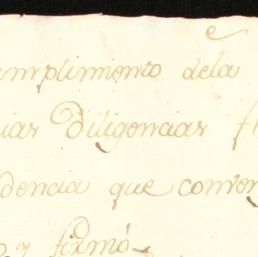 umplimiento dela
uias Diligencias
dencia que conven
y firmó